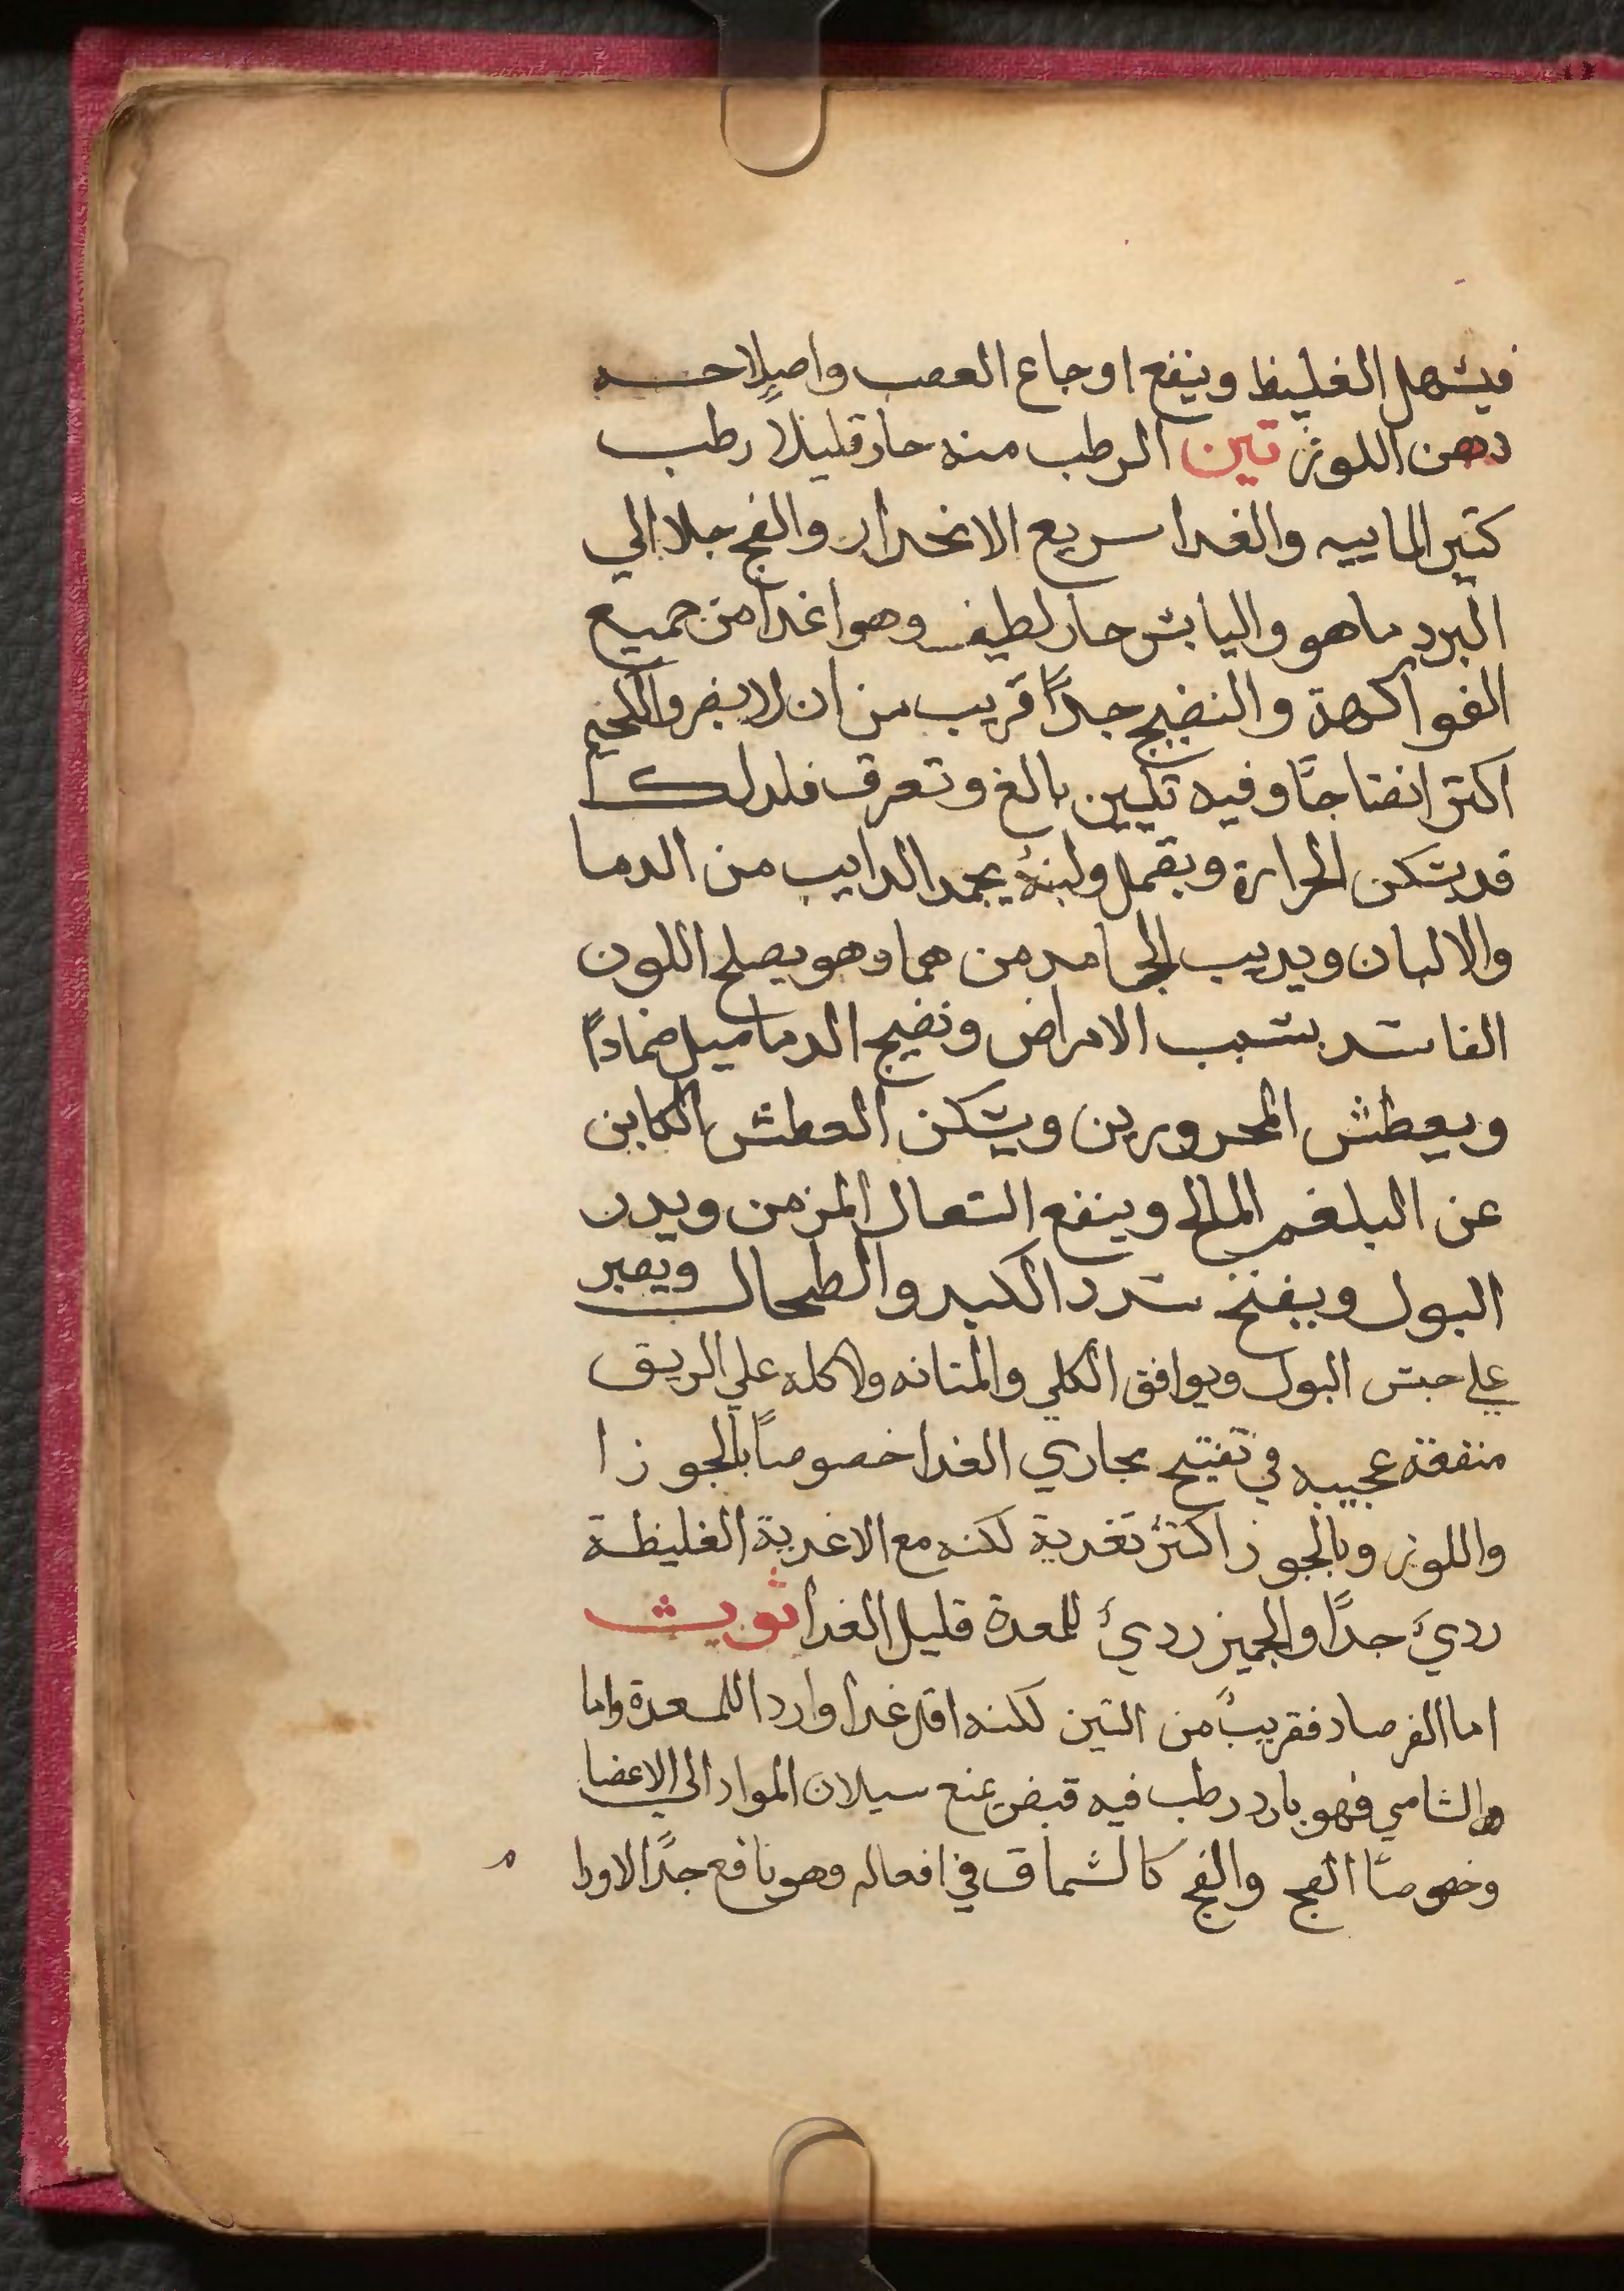 فيسهل الغليظ وينفع اوجاع العصب واصلاحه
دهن اللوز تين الرطب منه حار قليلاً رطب
كتير الماييه والغدا سريع الانحدار والفج جلا الي
البرد ماهو واليابس حار لطيف وهو اغدا من جميع
الفواكهة والنضيج جداً قريب من ان لا يضر واللحيم
اكتر انضتاجاً وفيه تليين بالغ وتعرق فلدلك
قد يسكن الحرارة ويقمل ولبنهُ يجمد الدايب من الدما
والالبان ويديب الجامد من هما وهو يصلح اللون
الفاسد بسبب الامراض ونضيج الدماميل ضماداً
ويعطش المحرورين ويسكن العطش الكاين
عن البلغم المالح وينفع السعال المزمن ويدر
البول ويفتح سدد الكبد والطحال ويصبر
علي حبس البول ويوافق الكلي والمتانه ولاكله علي الريق
منفعة عجيبه في تفتيح مجاري الغدا خصوصاً بالجوز ا
واللوز وبالجوز اكتر تغدية لكنه مع الاغدية الغليظة
رديَ جداً والجميز رديُ للمعدة قليل الغدا ثويث
اما الفرصاد فقريبٌ من التين لكنه اقل غدا واردا للمعدة واما
والشامي فهو بارد رطب فيه قبض يمنع سيلان المواد الي الاعضا
وخصوصاً الفج والفج كالسماق في افعاله وهو نافع جداً لاورا م